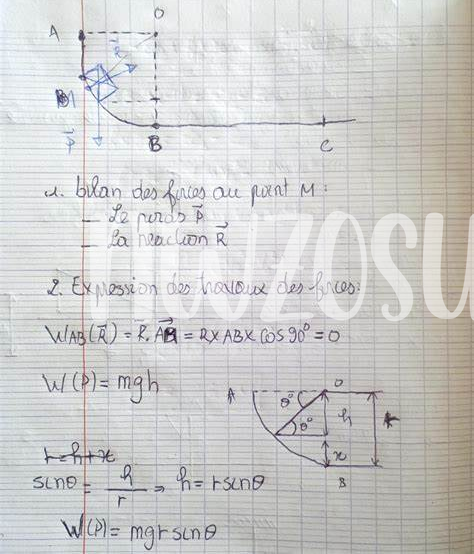 A
O
R
M
P
B
C
1. bilan des forces au point M :
- Le poids P⃗
- La reaction R⃗
2. Expression des travaux des forces:
W AB(R⃗) = R⃗.AB⃗ = R x AB x cos 90° = 0
W(P) = mgh
A
O
θ
θ
h
r
x
B
r = h + x
sinθ = h/r ⇒ h = r sinθ
W(P) = mgr sinθ